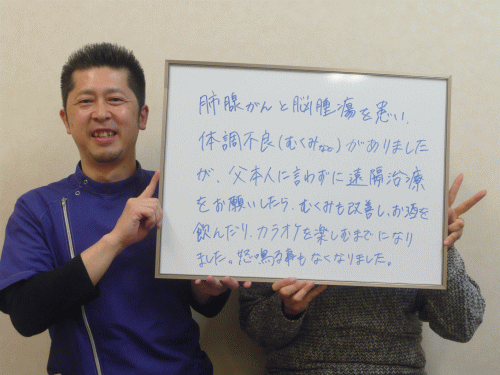 肺腺がんと脳腫瘍を患い、
体調不良(むくみなど)がありました
が、父本人に言わずに遠隔治療
をお願いしたら、むくみも改善し、お酒を
飲んだり、カラオケを楽しむまでになり
ました。怒鳴る事もなくなりました。